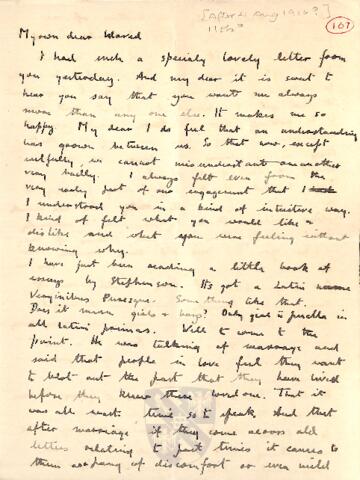 [After 21 Aug 1916?]
11th?
167
My own dear
I had such a specialy lovely letter from
you yesterday. And my dear it is sweet to
hear you say that you want me always
more than any one else. It makes me so
happy. My dear I do feel that an understanding
has grown between us. So that now, except
wilfully, we cannot misunderstand one another
very badly. I always felt even from the
very early part of our engagement that I
I understood you in a kind of intuitive way.
I kind of felt what you would like or
dislike and what you were feeling without
knowing why.
I have just been reading a little book of
essays by Stephenson. Its got a Latin name
Virginibus Puresque. Something like that.
Does it mean girls & boys? Only girl is puella in
all latin primers. Well to come to the
point. He was talking of marriage and
said that people in love feel they want
to blot out the past that they have lived
before they knew their loved one. That it
was all waste time so to speak. And that
after marriage if they come across old
letters relating to past times it causes to
them a pang of discomfort or even mild